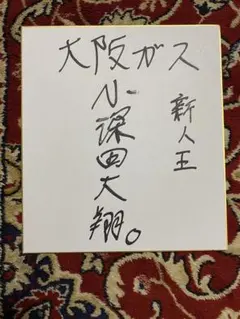 大阪ガス
小深田大翔。
新人王